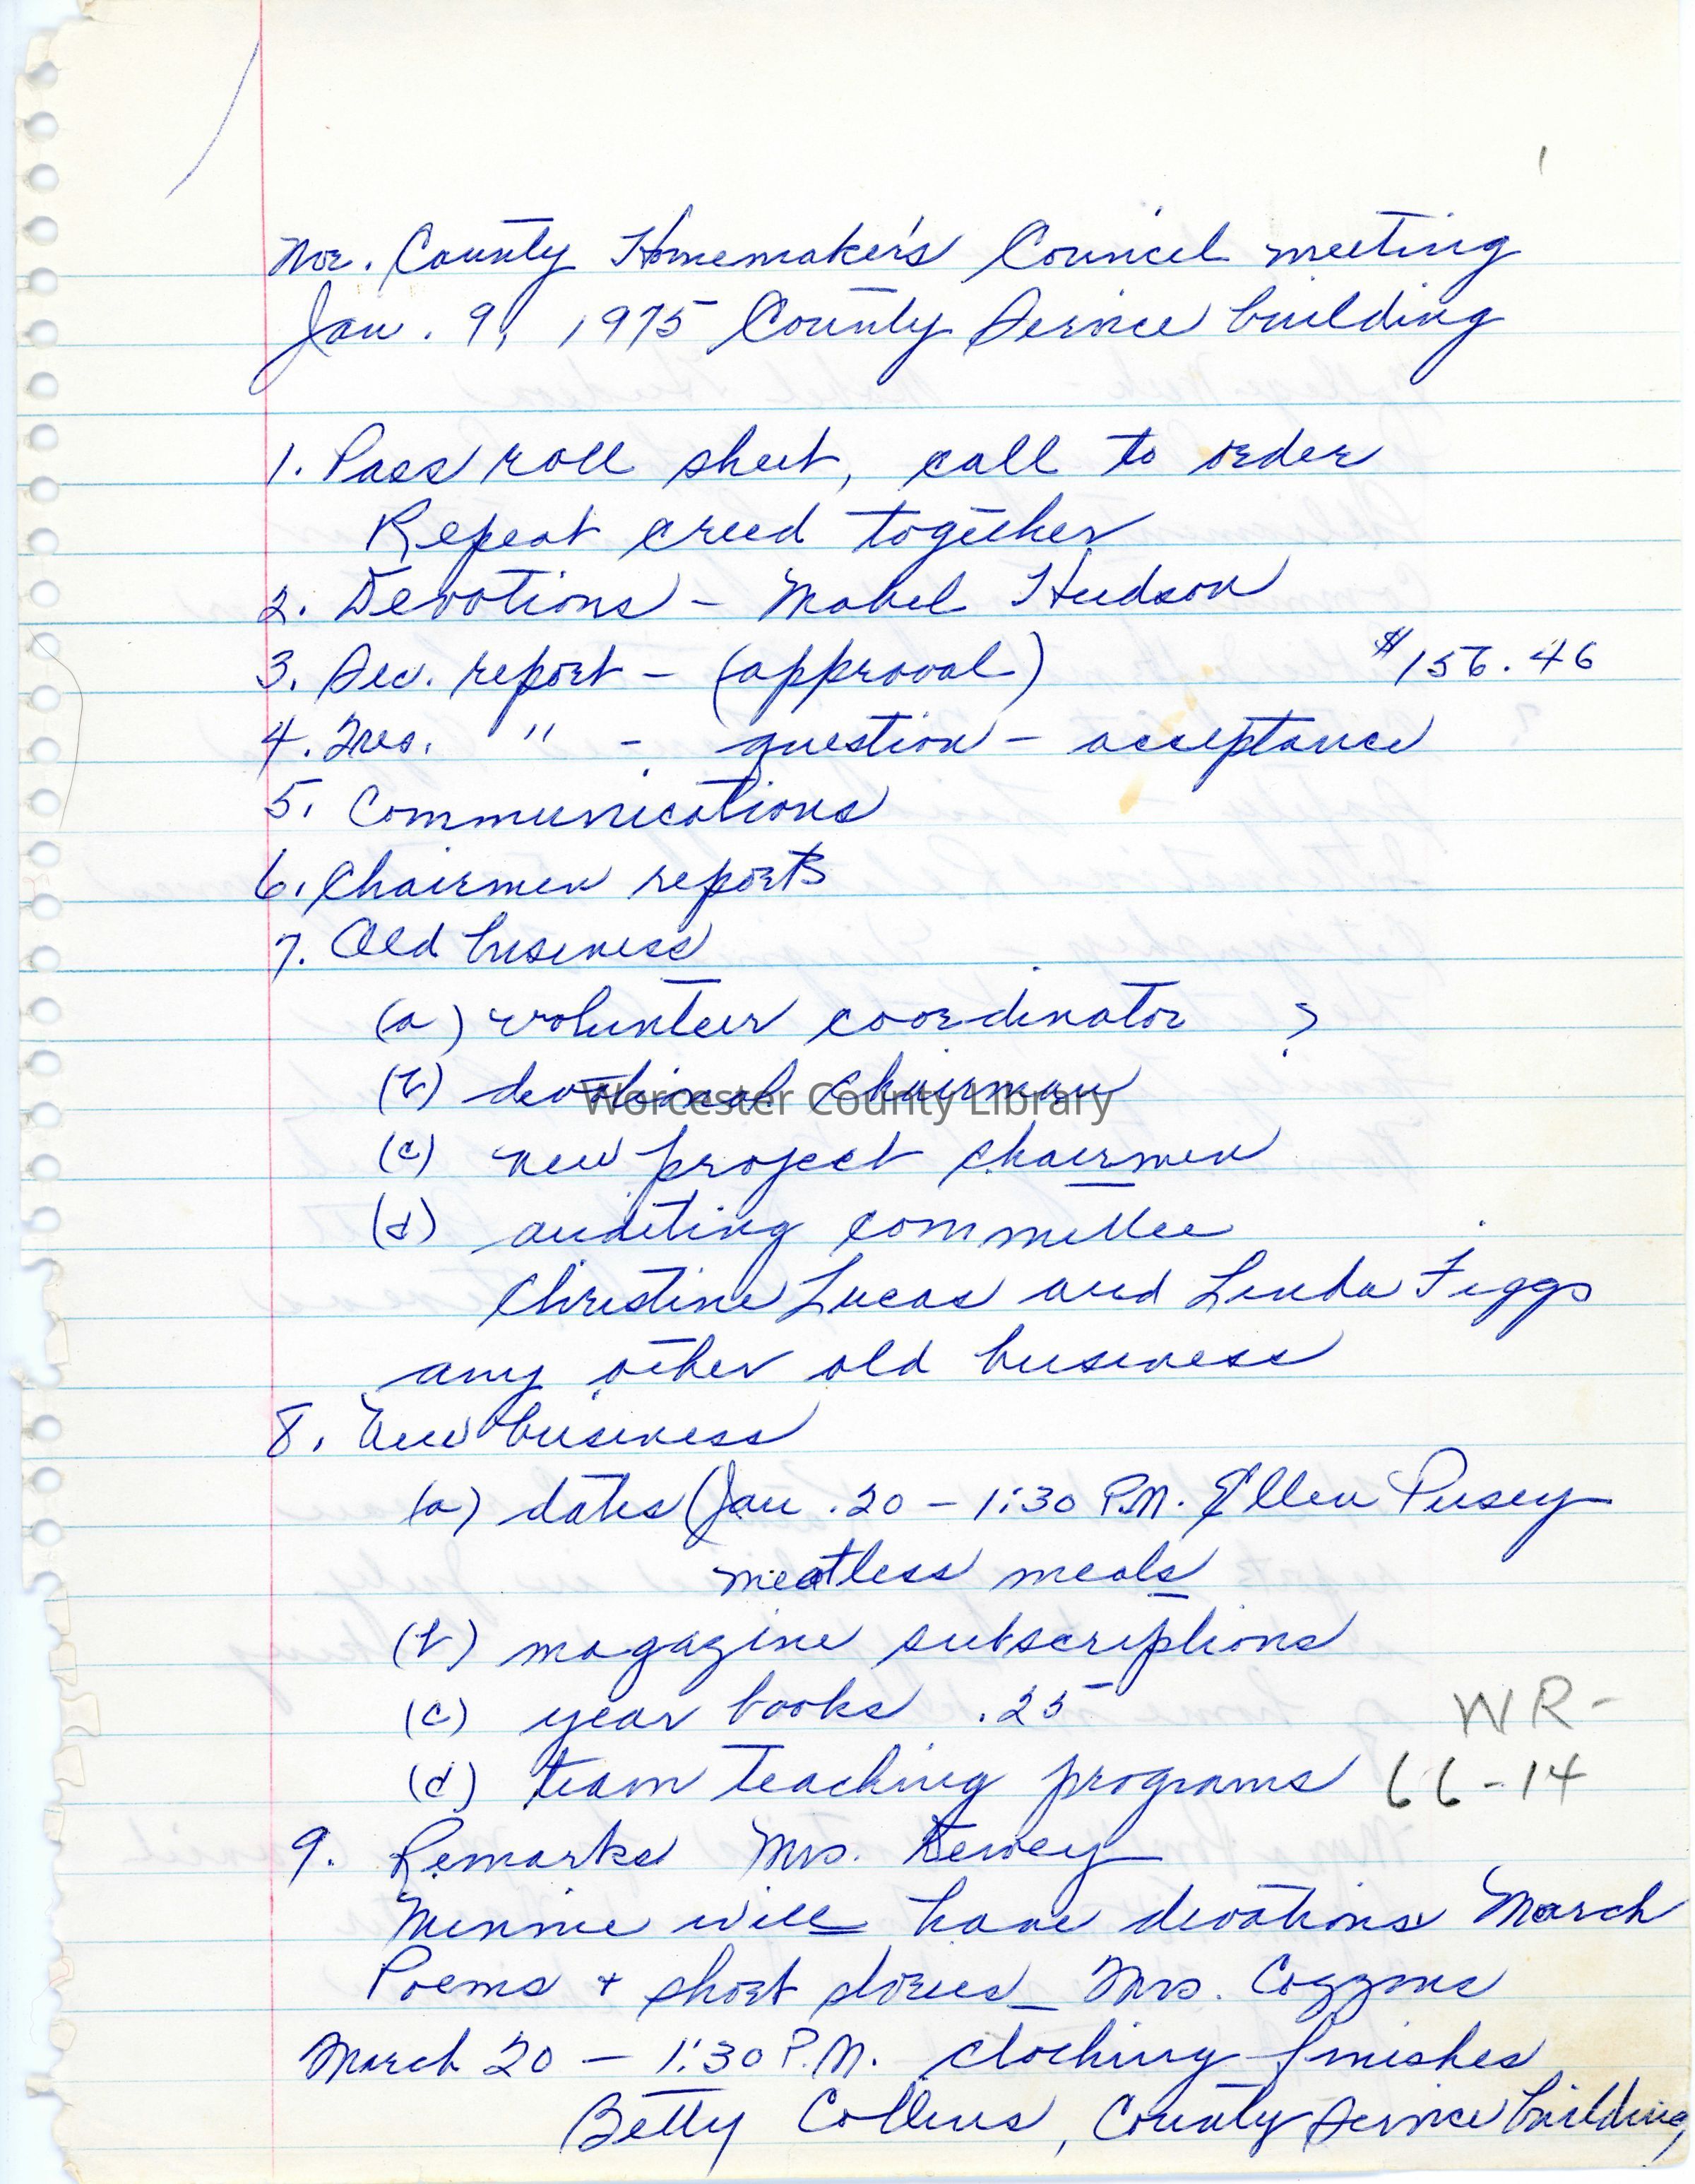 1
Wor. County Homemaker's Council meeting
Jan. 9, 1975 County Service building
1. Pass roll sheet, call to order
Repeat creed together
2. Devotions - Mabel Hudson
3. Sec. report - (approval) $156.46
4. Tres. " - question - acceptance
5. Communications
6. Chairmen reports
7. Old business
(a) volunteer coordinator ?
(b) devotional chairman
Worcester County Library
(c) new project chairmen
(d) auditing committee
Christine Lucas and Linda Figgs
any other old business
8. New business
(a) dates (Jan. 20 - 1:30 P.M. Ellen Pusey
meatless meals
(b) magazine subscriptions
(c) year books .25
WR-
(d) team teaching programs 66-14
9. Remarks Mrs.
Minnie will have devotions March
Poems + short stories - Mrs.
March 20 - 1:30 P.M. clothing finishes
Betty Collins, County Service building